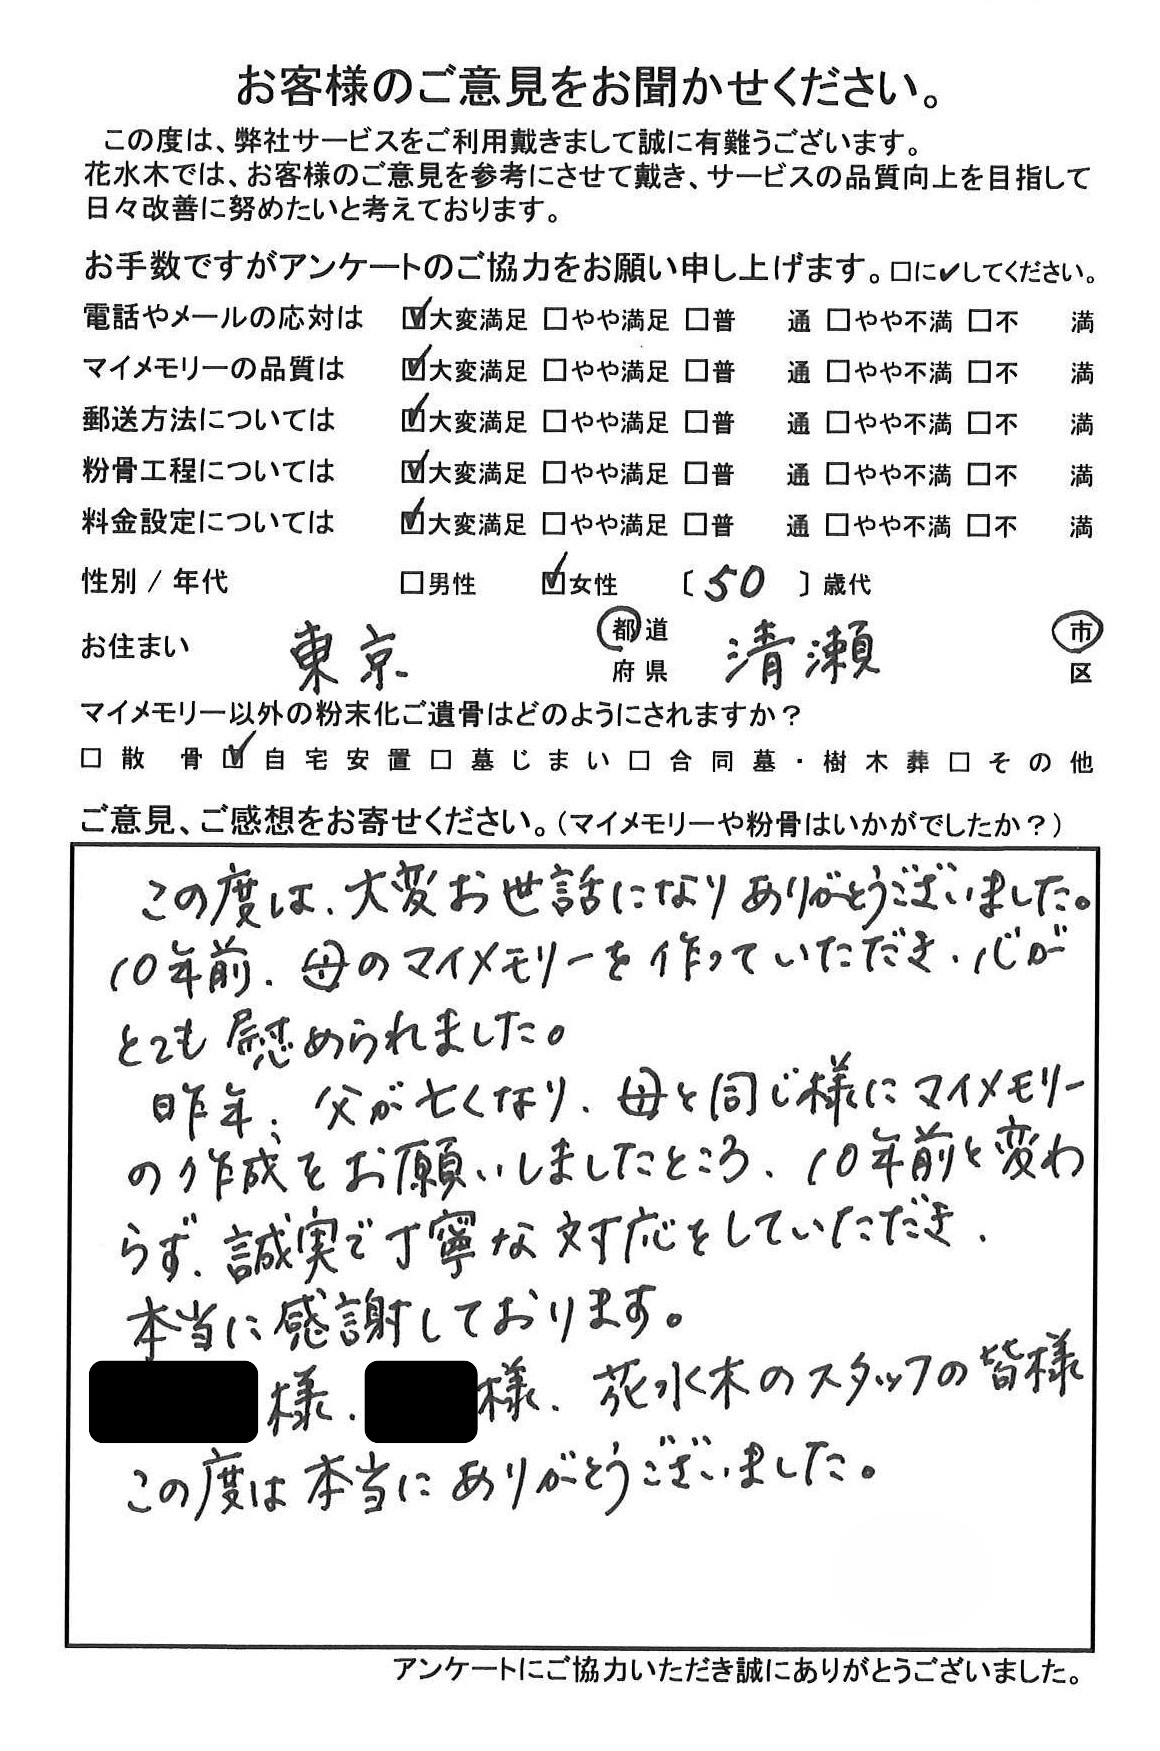 お客様のご意見をお聞かせください。
この度は、弊社サービスをご利用戴きまして誠に有難うございます。
花水木では、お客様のご意見を参考にさせて戴き、サービスの品質向上を目指して
日々改善に努めたいと考えております。
お手数ですがアンケートのご協力をお願い申し上げます。□に✔してください。
電話やメールの応対は ☑大変満足 □やや満足 □普 通 □やや不満 □不 満
マイメモリーの品質は ☑大変満足 □やや満足 □普 通 □やや不満 □不 満
郵送方法については ☑大変満足 □やや満足 □普 通 □やや不満 □不 満
粉骨工程については ☑大変満足 □やや満足 □普 通 □やや不満 □不 満
料金設定については ☑大変満足 □やや満足 □普 通 □やや不満 □不 満
性別 / 年代 □男性 ☑女性 〔 50 〕歳代
お住まい 東京 都道府県 清瀬 市区
マイメモリー以外の粉末化ご遺骨はどのようにされますか？
□散 骨 ☑自宅安置 □墓じまい □合同墓・樹木葬 □その他
ご意見、ご感想をお寄せください。（マイメモリーや粉骨はいかがでしたか？）
この度は、大変お世話になりありがとうございました。
10年前、母のマイメモリーを作っていただき、心が
とても慰められました。
昨年、父が亡くなり、母と同じ様にマイメモリー
の作成をお願いしましたところ、10年前と変わ
らず、誠実で丁寧な対応をしていただき、
本当に感謝しております。
様、様、花水木のスタッフの皆様
この度は本当にありがとうございました。
アンケートにご協力いただき誠にありがとうございました。